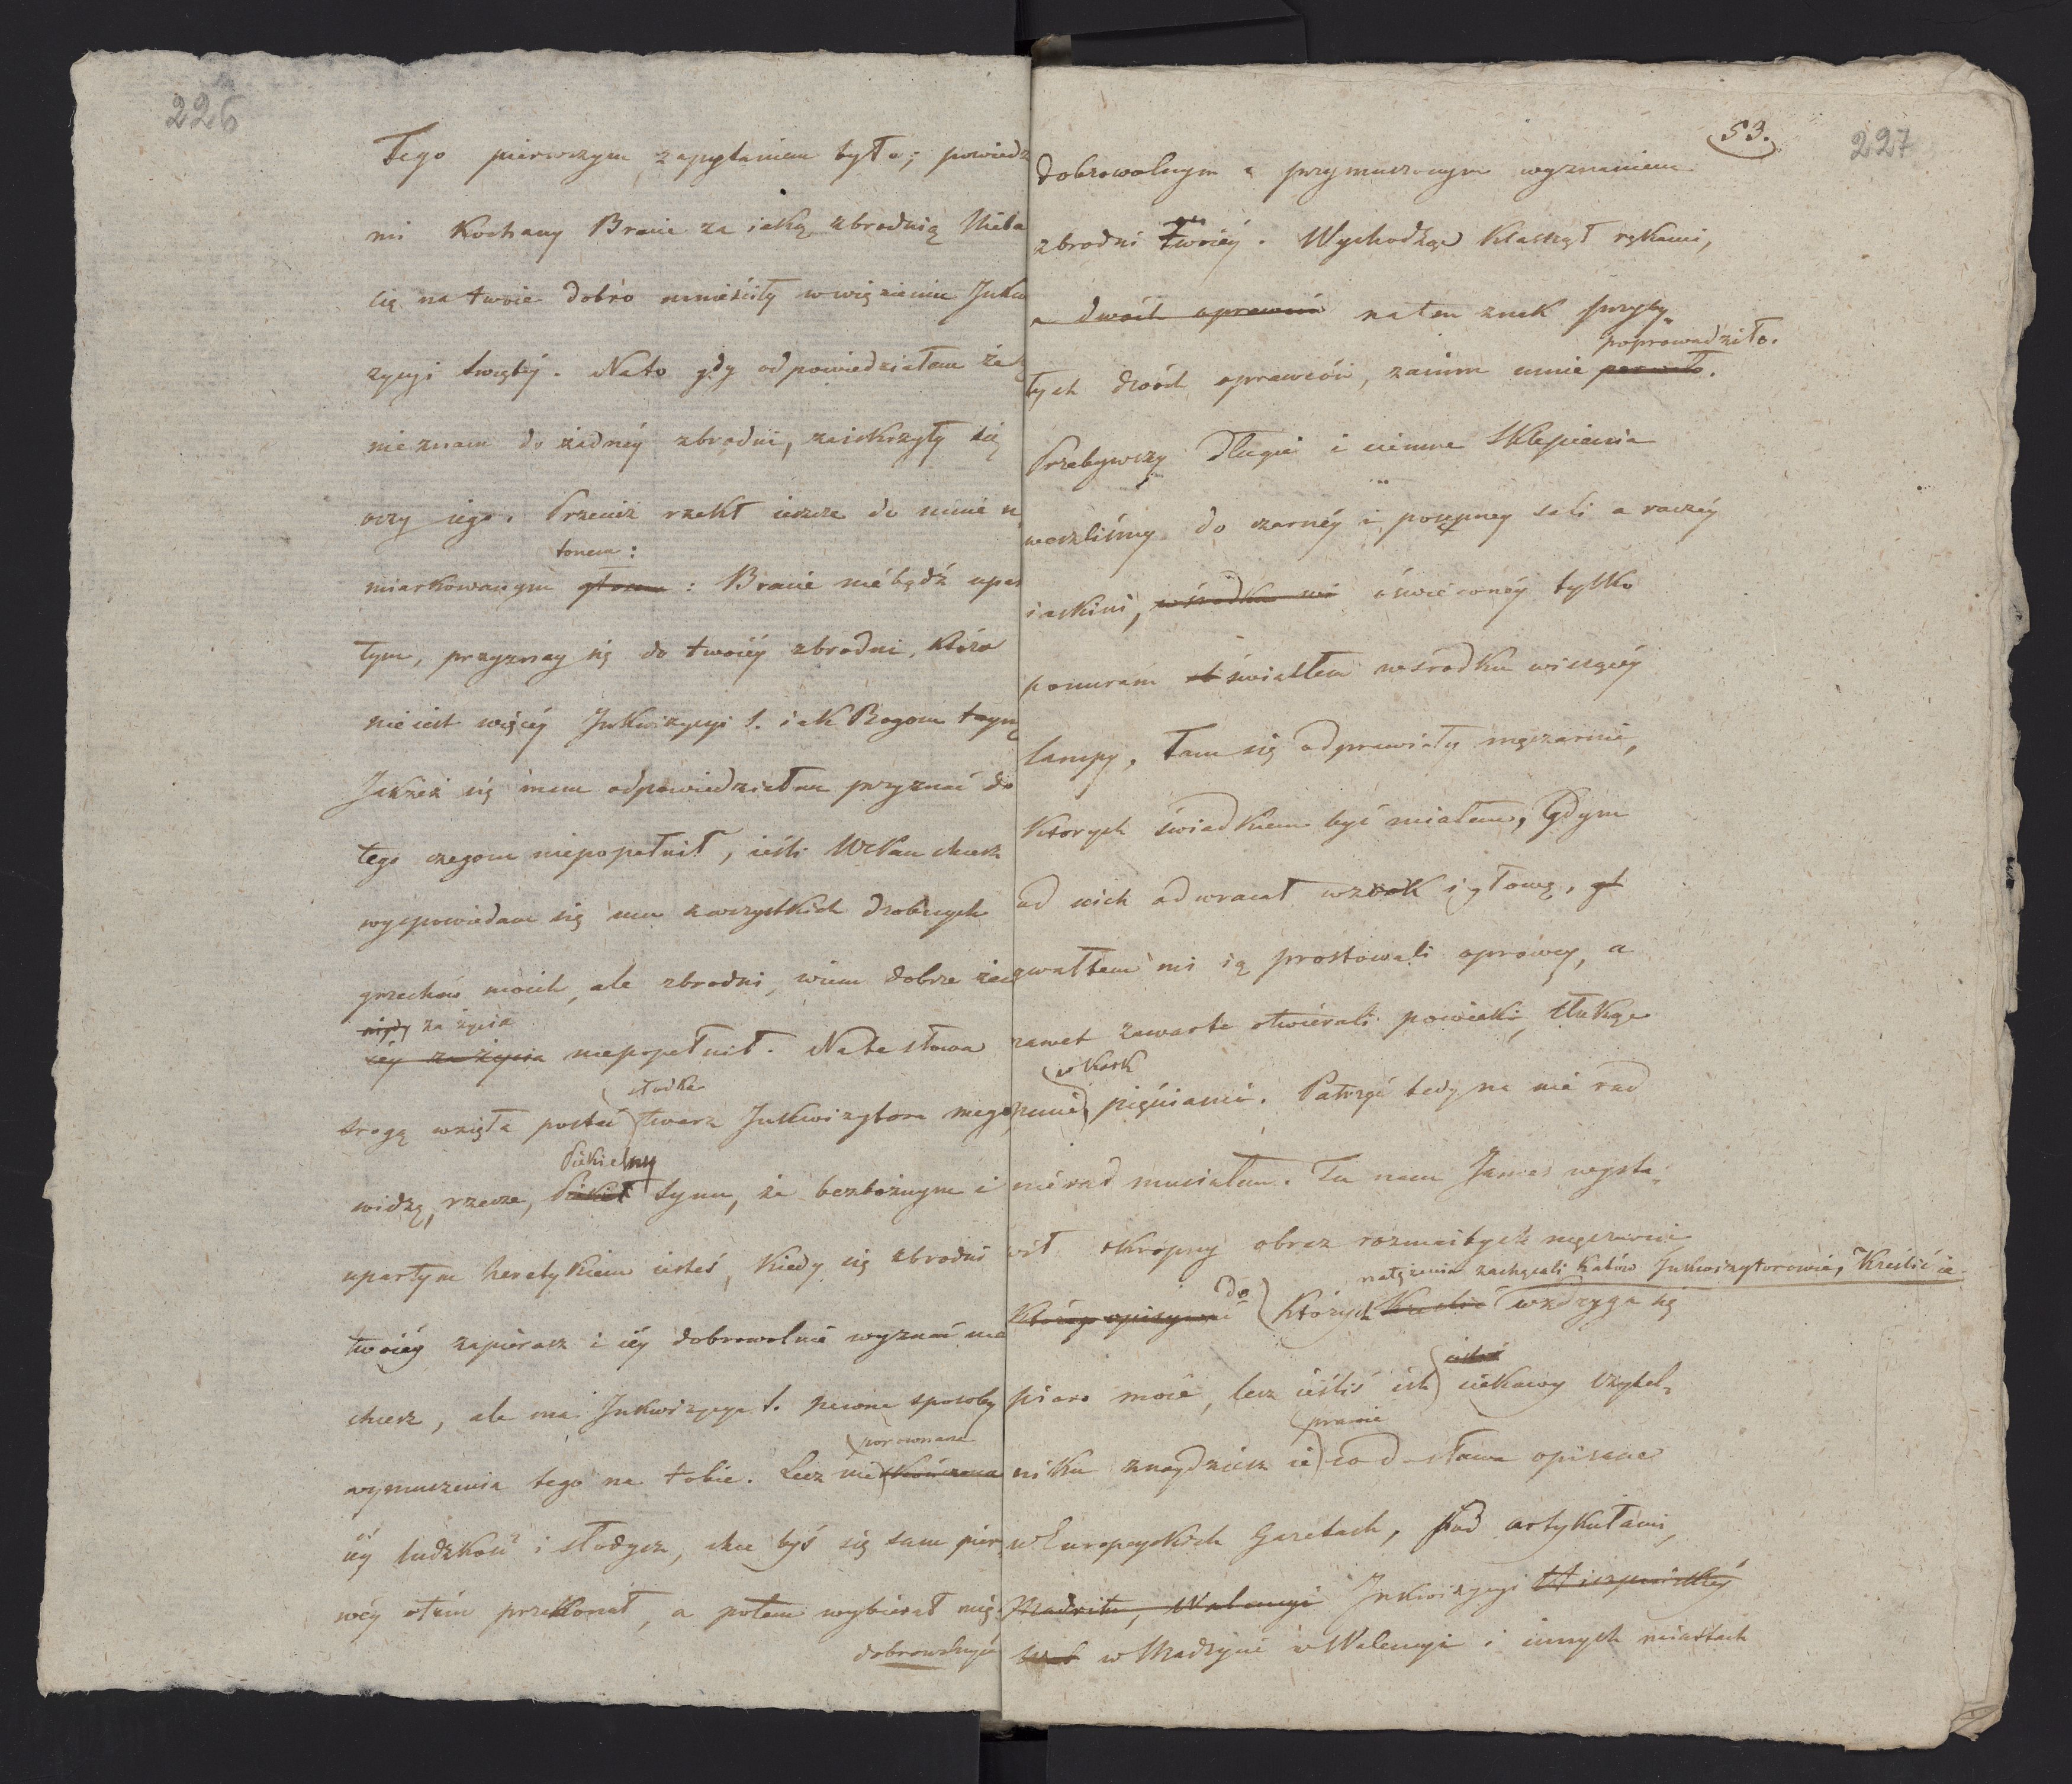 226
Tego pierwszym zapytaniem było; powiedz
mi Kochany Bracie za iaką zbrodnią Nieba
cię na twoie dobro umieściły w więzieniu Inkwi
zycyi świętéy. Na to gdy odpowiedziałem że
nieznam do żadnéy zbrodni, zaiskrzyły się
oczy iego. Przecież rzekł ieszcze do mnie u
tonem:
miarkowanym głosem : Bracie niébądź upar
tym, przyznay się do twoiéy zbrodni, która
nie iest więcéy Inkwizycyi S. iak Bogom tayną
Jakżeż się mam odpowiedziałem przyznać do
tego czegom niepopełnił, ieśli WPan chcesz
wyspowiadam się mu z wszystkich drobnych
grzechów moich, ale zbrodni, wiem dobrze żem
nigdy za życia
iéy za życia niepopełnił. Na te słowa
słodka
srogą wzięła postać twarz Inkwizytora mego,
Piekielny
widzę, rzecze, Piekieł synu, że bezbożnym i
upartym heretykiem iesteś, kiedy się zbrodni
twoiéy zapierasz i iéy dobrowolnie wyznać nie
chcesz, ale ma Inkwizycya S. pewne sposoby
porownana
wymuszenia tego na tobie. Lecz nieskończona
iéy ludzkość i słodycz, chce byś się sam pier
wéy o tém przekonał, a potem wybierał mię
dobrowolnym
53.
227
dobrowolnym a przymuszonym wyznaniem
zbrodni twoiéy. Wychodząc klasnął rękami,
a dwóch oprawców na ten znak przyby
poprowadziło.
łych dwóch oprawców, zanim mnie porwało.
Przebywszy długie i ciemne sklepienia
weszliśmy do czarnéy i posępney sali a raczéy
iaskini, w środku oświéconéy tylko
ponurém światłem w srodku wiszącéy
lampy, Tam się odprawiały męczarnie,
ktorych świadkiem być miałem, Gdym
od nich odwracał wzrok i głowę, gł
gwałtem mi ią prostowali oprawcy, a
nawet zawarte otwiérali powieki, tłukąc
w kark
mnie pięściami. Patrzyć tedy na nie rad
nie rad musiałem. Tu nam James wysta
wił okropny obraz rozmaitych męczarni
natężenia zachęcali katów Inkwizytorowie, Kreślić ie
do
którego opisywać których kreślić wzdryga się
pioro moie, lecz ieśliś ich ciekawy Czytel
prawie
niku znaydziesz ie co d słowa opisane
w Europeyskich Gazetach, pod artykułami,
Madritu, Walencyi Inkwizycyi Hiszpańskiéy
w Madrycie w Walencyi i innych miastach